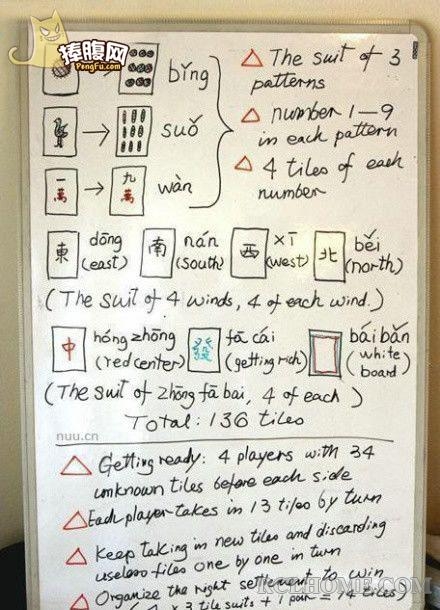 捧腹网
PengFu.com
bǐng
suǒ
一萬
九萬
wàn
The suit of 3
patterns
number 1—9
in each pattern
4 tiles of each
number
東
dōng
(east)
南
nán
(south)
西
xī
(west)
北
běi
(north)
(The suit of 4 winds, 4 of each wind.)
中
hóng zhōng
(red center)
發
fā cái
(getting rich)
bái bǎn
(white
board)
(The suit of zhōng fā bai, 4 of each)
Total: 136 tiles
nuu.cn
Getting ready: 4 players with 34
unknown tiles before each side
Each player takes in 13 tiles by turn
Keep taking in new tiles and discarding
useless tiles one by one in turn
Organize the right settlement to win
x 3 tile suits + 1 pair = 14 tiles)
KCLHOME.COM